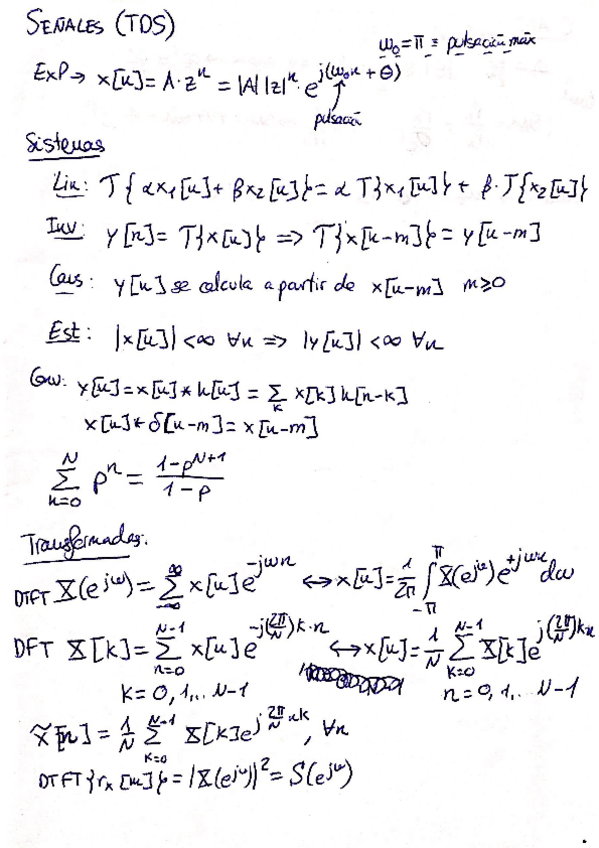 SEÑALES (TDS)
ω₀ = π ≡ pulsación máx
Exp → x[n] = A·zⁿ = |A| |z|ⁿ · e^{j(ω₀n + θ)}
pulsación
Sistemas
Lin: T{αx₁[n] + βx₂[n]} = αT{x₁[n]} + β·T{x₂[n]}
Inv: y[n] = T{x[n]} => T{x[n-m]} = y[n-m]
Caus: y[n] se calcula a partir de x[n-m] m≥0
Est: |x[n]| < ∞ ∀n => |y[n]| < ∞ ∀n
Conv: y[n] = x[n] * h[n] = Σ_k x[k] h[n-k]
x[n] * δ[n-m] = x[n-m]
Σ_{n=0}^{N} ρⁿ = (1-ρ^{N+1})/(1-ρ)
Transformadas:
DTFT X(e^{jω}) = Σ_{-∞}^{∞} x[n] e^{-jωn} ↔ x[n] = 1/2π ∫_{-π}^{π} X(e^{jω}) e^{+jωn} dω
DFT X[k] = Σ_{n=0}^{N-1} x[n] e^{-j(2π/N)k·n} ↔ x[n] = 1/N Σ_{k=0}^{N-1} X[k] e^{j(2π/N)kn}
k = 0, 1,.. N-1 n = 0, 1,.. N-1
x̃[n] = 1/N Σ_{k=0}^{N-1} X[k] e^{j 2π/N nk}, ∀n
DTFT{rₓ[m]} = |X(e^{jω})|² = S(e^{jω})